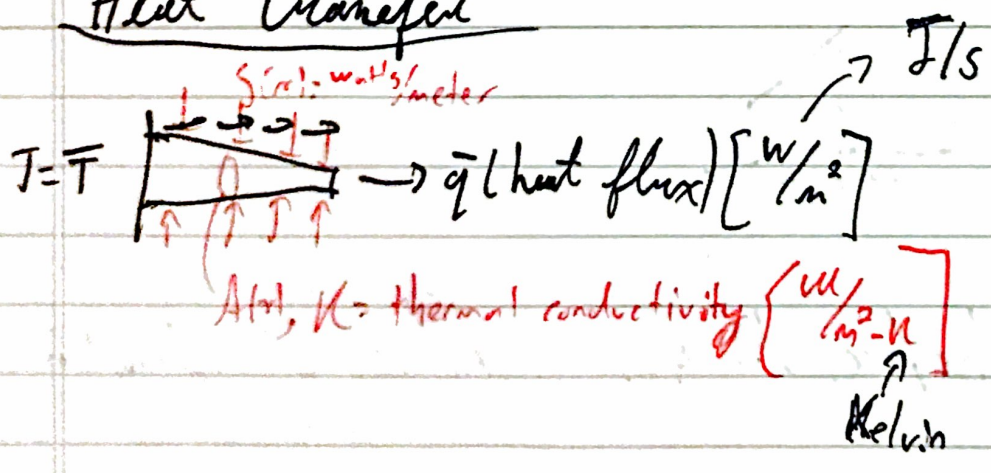 Heat Transfer
J/s
S(x): watts/meter
J = T̅ → q̄ (heat flux) [W/m²]
A(x), K = thermal conductivity [W/m²-K]
Kelvin